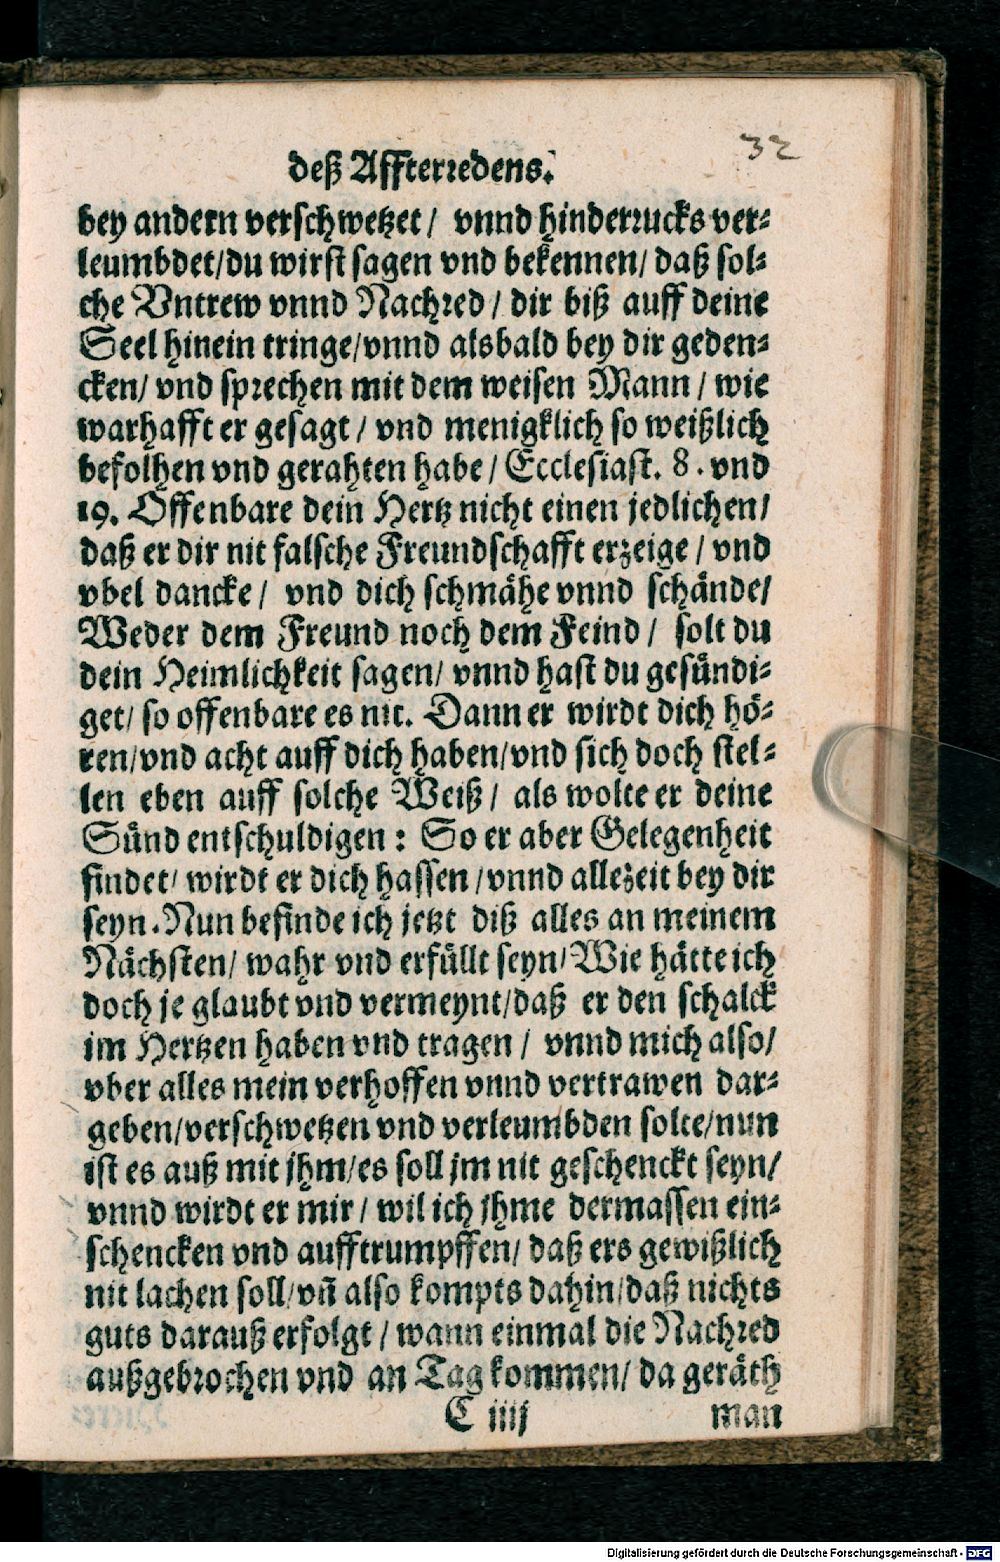 32
deß Affterredens.
bey andern verschwetzet / vnnd hinderrucks ver-
leumbdet/du wirst sagen vnd bekennen/ daß sol-
che Vntrew vnnd Nachred / dir biß auff deine
Seel hinein tringe/vnnd alsbald bey dir geden-
cken/ vnd sprechen mit dem weisen Mann / wie
warhafft er gesagt / vnd menigklich so weißlich
befolhen vnd gerahten habe / Ecclesiast. 8. vnd
19. Offenbare dein Hertz nicht einen jedlichen/
daß er dir nit falsche Freundschafft erzeige / vnd
vbel dancke / vnd dich schmähe vnnd schände/
Weder dem Freund noch dem Feind / solt du
dein Heimlichkeit sagen/ vnnd hast du gesündi-
get/ so offenbare es nit. Dann er wirdt dich hö-
ren/vnd acht auff dich haben/vnd sich doch stel-
len eben auff solche Weiß / als wolte er deine
Sünd entschuldigen : So er aber Gelegenheit
findet/ wirdt er dich hassen /vnnd allezeit bey dir
seyn. Nun befinde ich jetzt diß alles an meinem
Nächsten/ wahr vnd erfüllt seyn/ Wie hätte ich
doch je glaubt vnd vermeynt/daß er den schalck
im Hertzen haben vnd tragen / vnnd mich also/
vber alles mein verhoffen vnnd vertrawen dar-
geben/verschwetzen vnd verleumbden solte/nun
ist es auß mit jhm/es soll jm nit geschenckt seyn/
vnnd wirdt er mir / wil ich jhme dermassen ein-
schencken vnd aufftrumpffen/ daß ers gewißlich
nit lachen soll/vñ also kompts dahin/daß nichts
guts darauß erfolgt / wann einmal die Nachred
außgebrochen vnd an Tag kommen/ da geräth
C iiij man
Digitalisierung gefördert durch die Deutsche Forschungsgemeinschaft - DFG